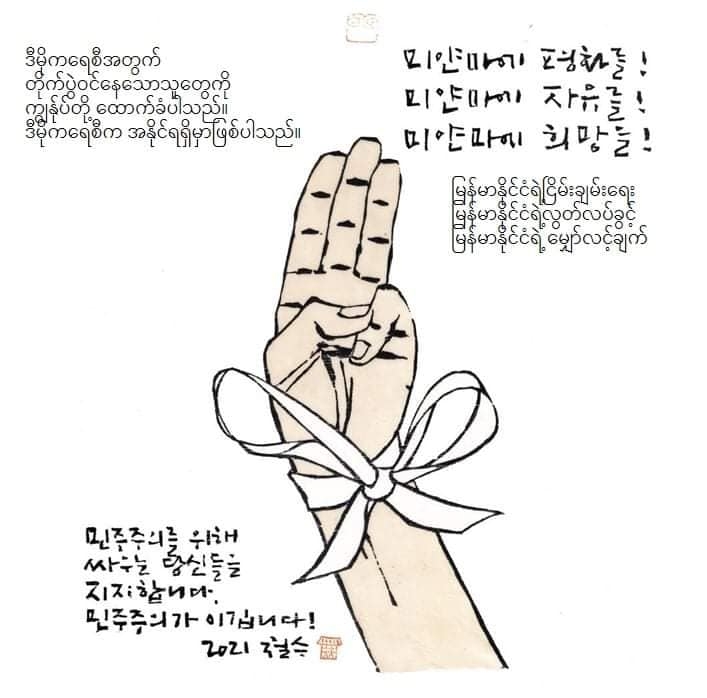 ဒီမိုကရေစီအတွက်
တိုက်ပွဲဝင်နေသောသူတွေကို
ကျွန်ုပ်တို့ ထောက်ခံပါသည်။
ဒီမိုကရေစီက အနိုင်ရရှိမှာဖြစ်ပါသည်။
미얀마에 평화를!
미얀마에 자유를!
미얀마에 희망을!
မြန်မာနိုင်ငံရဲ့ငြိမ်းချမ်းရေး
မြန်မာနိုင်ငံရဲ့လွတ်လပ်ခွင့်
မြန်မာနိုင်ငံရဲ့မျှော်လင့်ချက်
민주주의를 위해
싸우는 당신들을
지지합니다.
민주주의가 이깁니다!
2021 철수